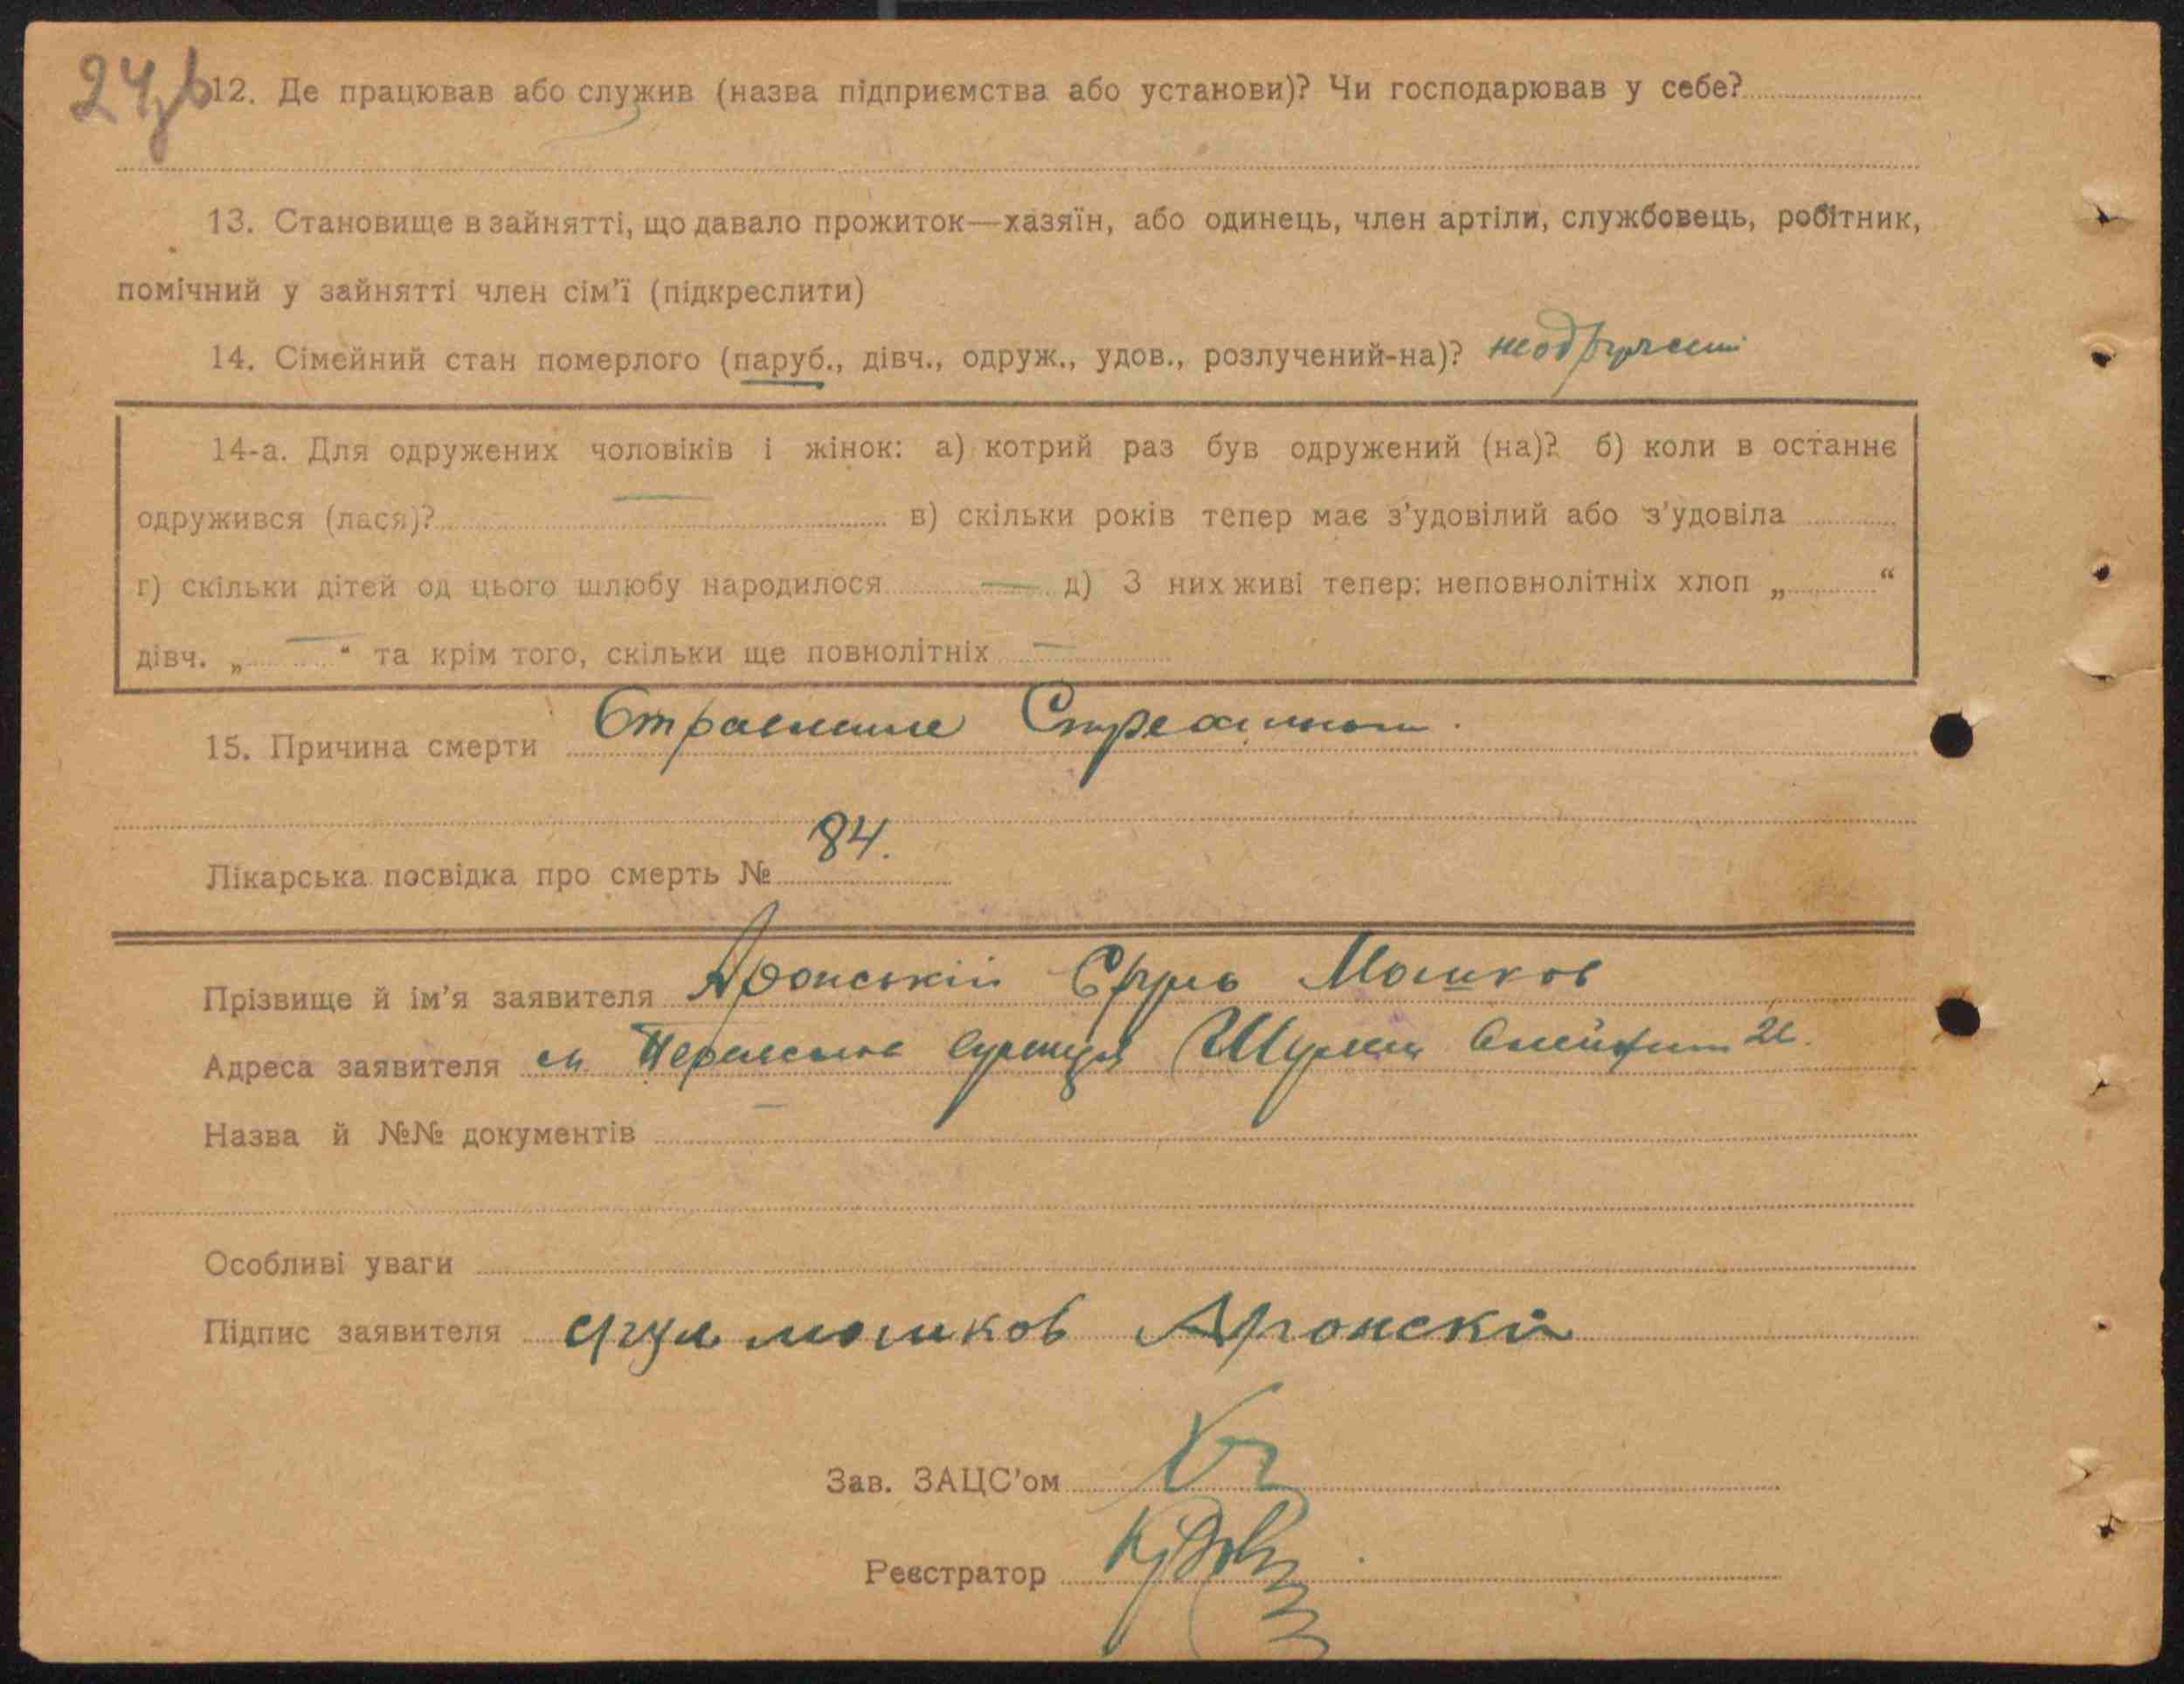 12. Де працював або служив (назва підприємства або установи)? Чи господарював у себе?
13. Становище в зайнятті, що давало прожиток—хазяїн, або одинець, член артіли, службовець, робітник,
помічний у зайнятті член сім'ї (підкреслити)
14. Сімейний стан померлого (паруб., дівч., одруж., удов., розлучений-на)?
14-а. Для одружених чоловіків і жінок: а) котрий раз був одружений (на)? б) коли в останнє
одружився (лася)? в) скільки років тепер має з'удовілий або з'удовіла
г) скільки дітей од цього шлюбу народилося — д) З них живі тепер: неповнолітніх хлоп „ “
дівч. „ — “ та крім того, скільки ще повнолітніх —
15. Причина смерти
Лікарська посвідка про смерть № 84.
Прізвище й ім'я заявителя Аронській Сруль Мошков
Адреса заявителя м
Назва й №№ документів
Особливі уваги
Підпис заявителя мошков Аронскій
Зав. ЗАЦС'ом
Реєстратор